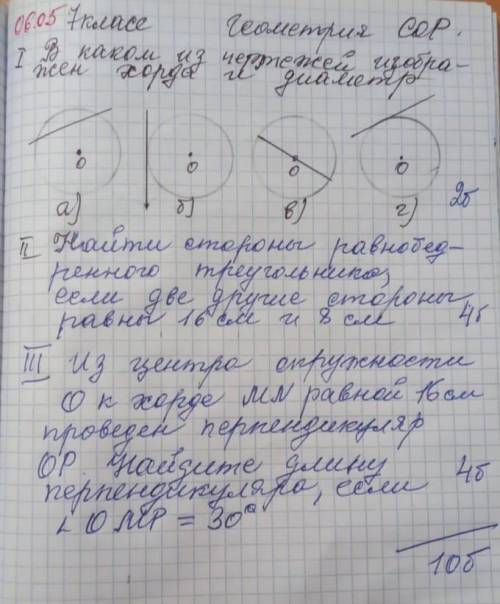 06.05 7класс Геометрия СОР.
I В каком из чертежей изобра-
жен хорда и диаметр
О О О О
а) б) в) г) 2б
II Найти стороны равнобед-
ренного треугольника,
если две другие стороны
равны 16 см и 8 см 4б
III Из центра окружности
О к хорде MN равной 16см
проведен перпендикуляр
OP. Найдите длину
перпендикуляра, если 4б
∠ OMP = 30°
10б